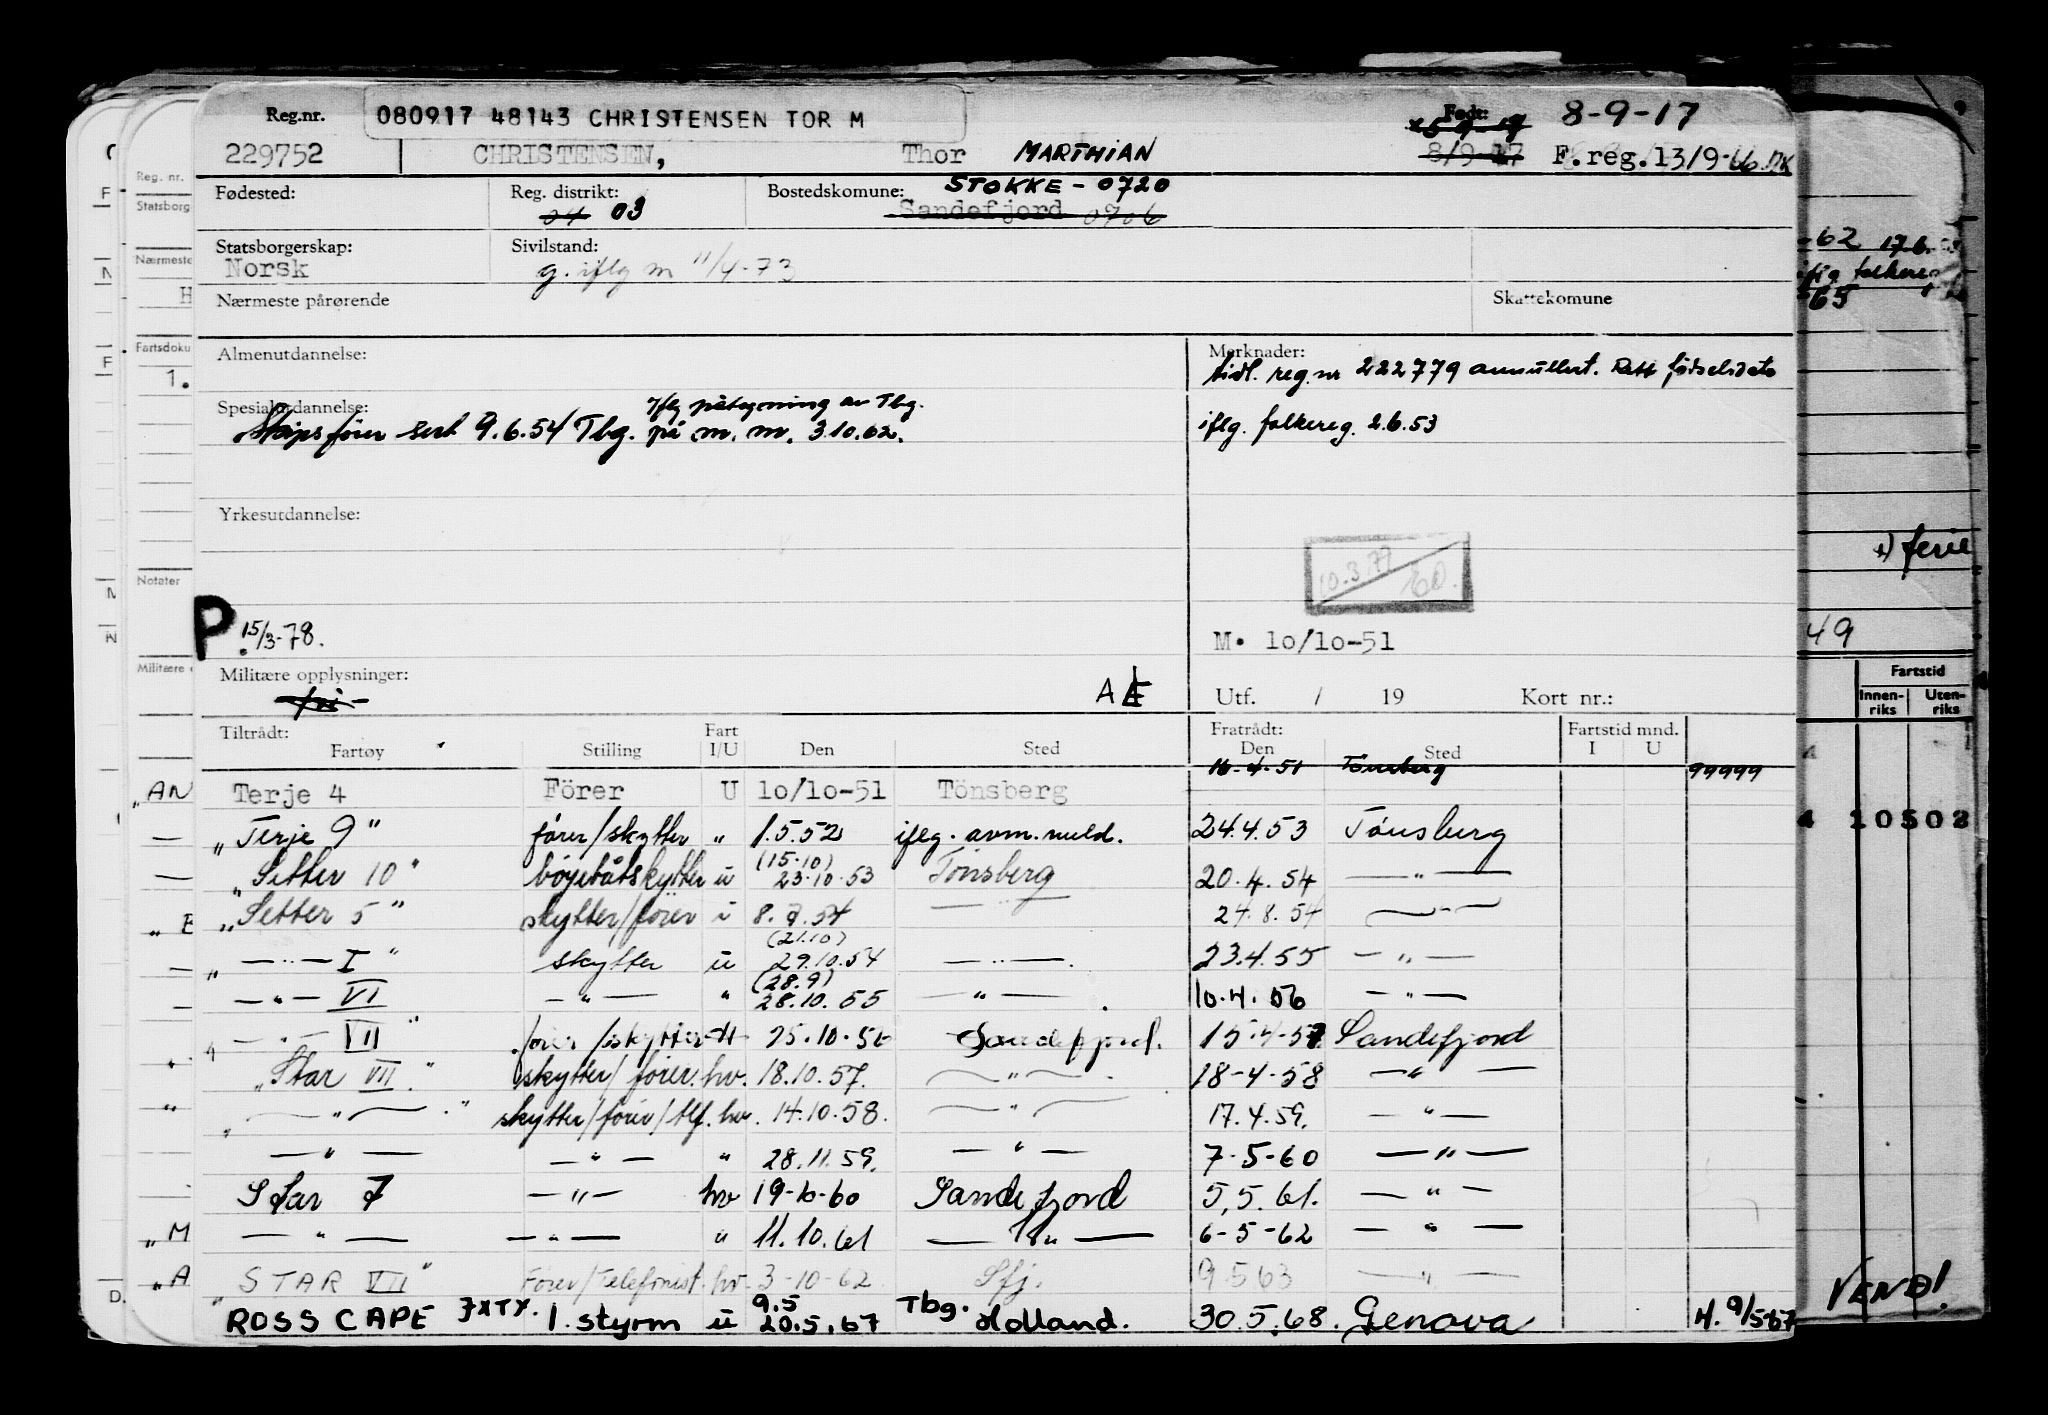 Reg.nr. 080917 48143 CHRISTENSEN TOR M Født: 8-9-17
229752 CHRISTENSEN, Thor MARTHIAN 8/9-17 F.reg.13/9-66
Fødested: Reg. distrikt: Bostedskomune: STOKKE - 0720
04 03 Sandefjord 0706
Statsborgerskap: Sivilstand:
Norsk g. iflg m 11/4-73
Nærmeste pårørende Skattekomune
Almenutdannelse: Merknader:
tidl. reg.nr 222779 annullert. Rett fødselsdato
Spesialutdannelse: iflg påtegning av Tbg.
Skipsfører sert 9.6.54 Tbg. på m. m. 3.10.62. iflg. folkereg. 2.6.53
Yrkesutdannelse:
10.3.77
P 15/3-78.
M. 10/10-51
Militære opplysninger:
fri A
Utf. / 19 Kort nr.:
Tiltrådt: Fart Fratrådt: Fartstid mnd.
Fartøy Stilling I/U Den Sted Den Sted I U
16-4-51 Tönsberg 99999
Terje 4 Förer U 10/10-51 Tönsberg
„Terje 9" fører/skytter " 1.5.52 iflg. avm.meld. 24.4.53 Tönsberg
(15.10)
„Setter 10" bøyebåtskytter u 23.10.53 Tönsberg 20.4.54 — " —
„Setter 5" skytter/fører i 8.7.54 — " — 24.8.54 — " —
(21.10)
„ — " — I " skytter u 29.10.54 — " — 23.4.55 — " —
(28.9)
— " — VI — " — " 28.10.55 — " — 10.4.56 — " —
— " — VII " fører/skytter 25.10.56 Sandefjord. 15-4-57 Sandefjord
„Star VII." skytter/fører. hv. 18.10.57. — " — 18-4-58 — " —
„ — " — " skytter/fører/tlf. hv. 14.10.58. — " — 17.4.59. — " —
— " — — " — " 28.11.59. — " — 7-5-60 — " —
Star 7 — " — hv 19-10-60 Sandefjord 5.5.61. — " —
— " — — " — " 11.10.61 — " — 6-5-62 — " —
„STAR VII" Fører/Telefonist. hv. 3-10-62 Sfj. 9.5.63 — " —
9.5 Tbg.
ROSS CAPE JXTX. 1. styrm u 20.5.67 Holland. 30.5.68. Genova 4. 9/5-67
Reg. nr.
Statsborg
Nærmeste
H
Fartsdoku
1.
Notater
Militære
„AN
„E
„M
„A
D.
-62 17.6.
iflg folkereg
65
x) ferie
49
Fartstid
Innen-riks Uten-riks
4 10502
VEND!